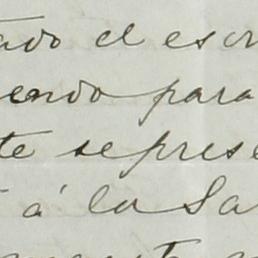 ado el escr
endo para
te se prese
á la Sa